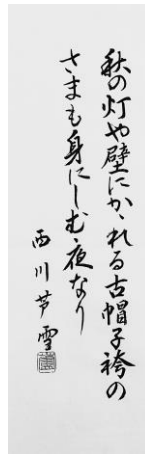 秋の灯や壁にかゝれる古帽子袴の
さまも身にしむ夜なり
西川芦雪